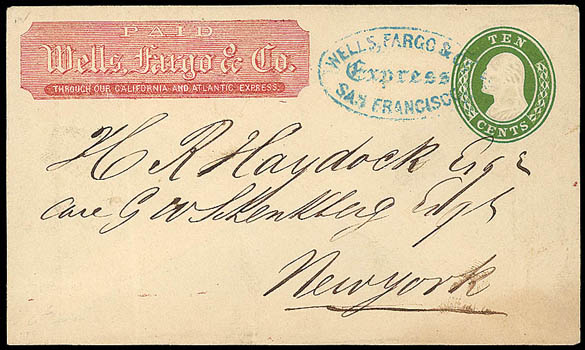 PAID
Wells, Fargo & Co.
THROUGH OUR CALIFORNIA AND ATLANTIC EXPRESS.
WELLS, FARGO &
Express
SAN FRANCISCO
TEN
CENTS
H R Haydock Esqr
care G W
New York